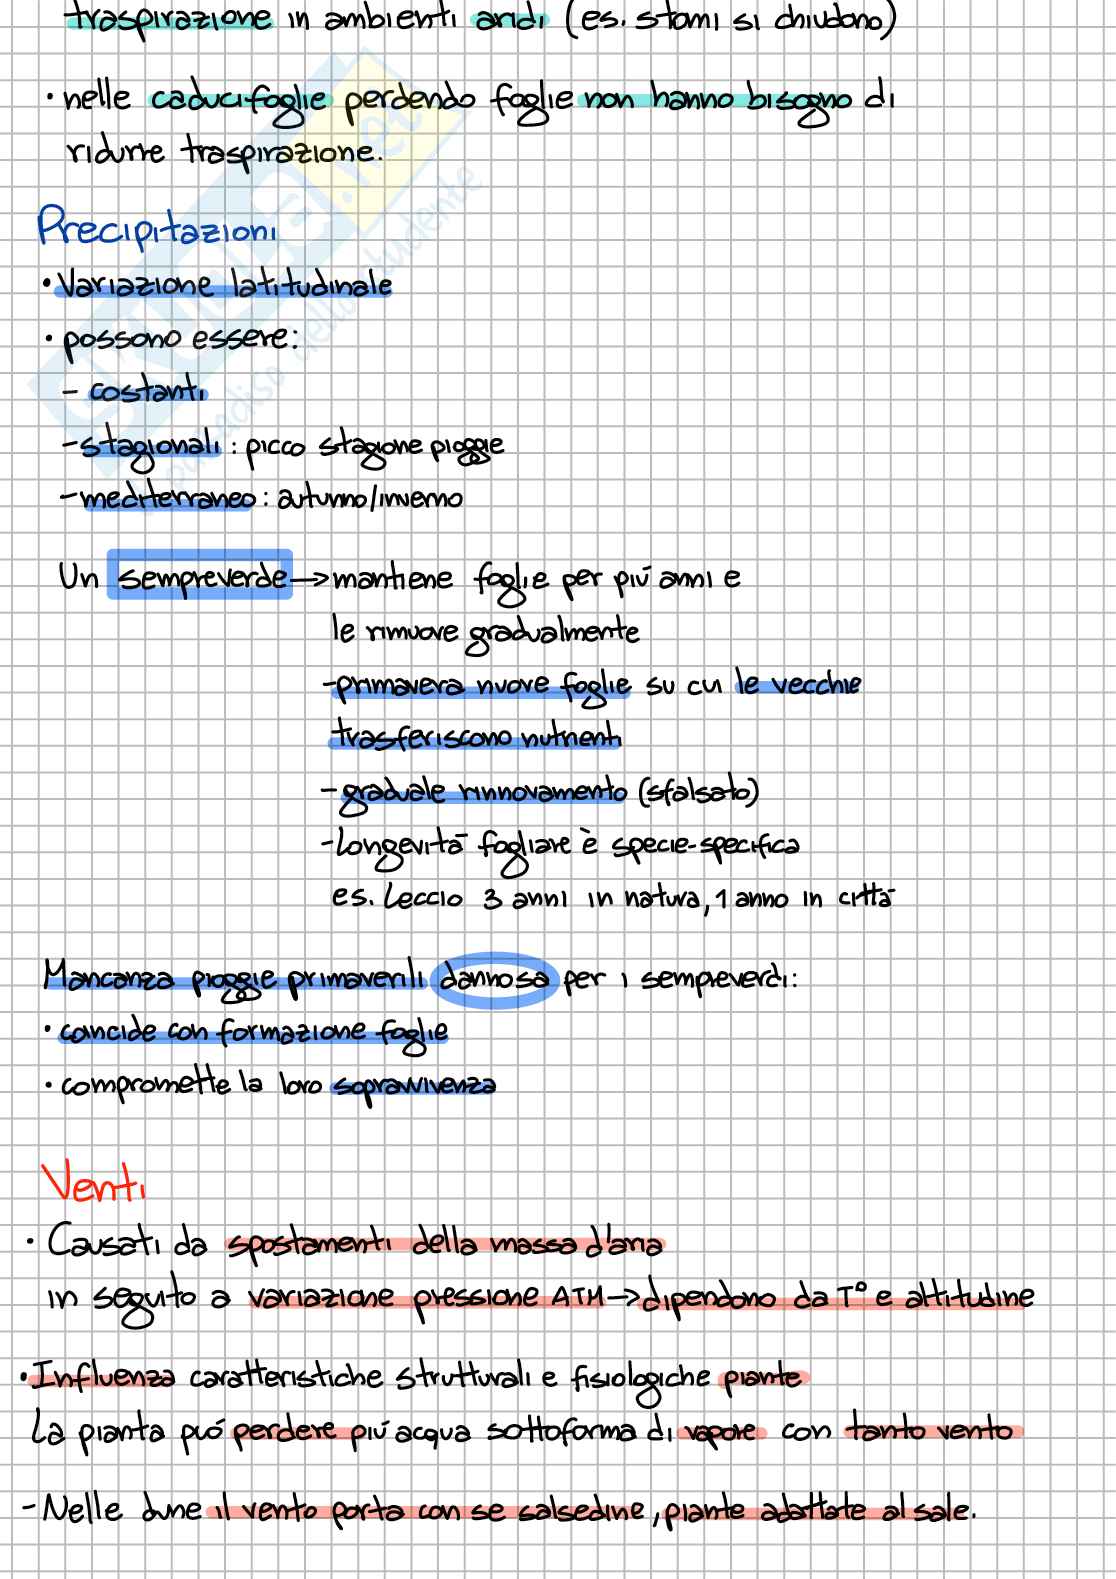 traspirazione in ambienti aridi (es. stomi si chiudono)
• nelle caducifoglie perdendo foglie non hanno bisogno di
ridurre traspirazione.
Precipitazioni
• Variazione latitudinale
• possono essere:
- costanti
- stagionali : picco stagione piogge
- mediterraneo : autunno/inverno
Un sempreverde → mantiene foglie per più anni e
le rimuove gradualmente
- primavera nuove foglie su cui le vecchie
trasferiscono nutrienti
- graduale rinnovamento (sfalsato)
- Longevità fogliare è specie-specifica
es. Leccio 3 anni in natura, 1 anno in città
Mancanza piogge primaverili dannosa per i sempreverdi:
• coincide con formazione foglie
• compromette la loro sopravvivenza
Venti
• Causati da spostamenti della massa d'aria
in seguito a variazione pressione ATM → dipendono da T° e altitudine
• Influenza caratteristiche strutturali e fisiologiche piante
La pianta può perdere più acqua sottoforma di vapore con tanto vento
- Nelle dune il vento porta con se salsedine, piante adattate al sale.